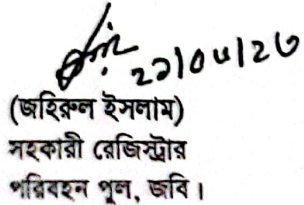 (জহিরুল ইসলাম)
সহকারী রেজিস্ট্রার
পরিবহন পুল, জবি।